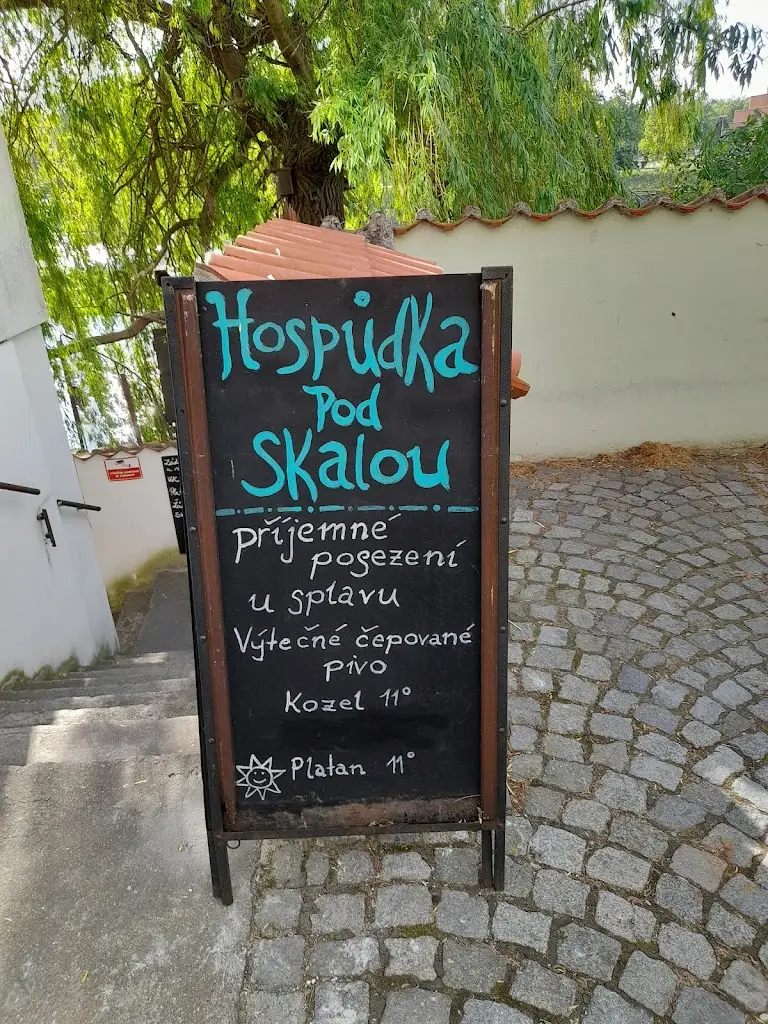 Hospůdka
Pod
Skalou
příjemné
posezení
u splavu
Výtečné čepované
pivo
Kozel 11°
Platan 11°